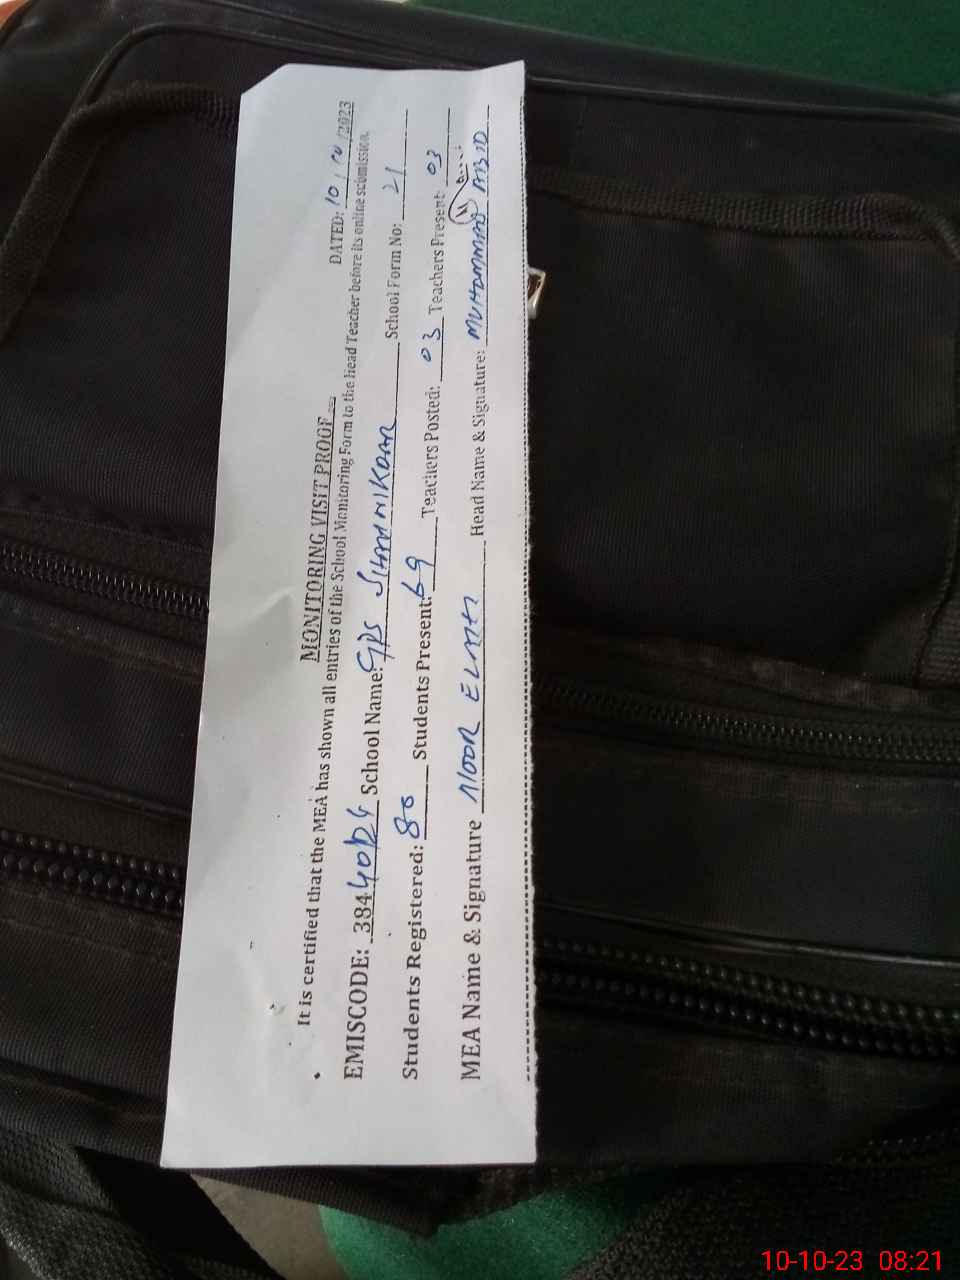 MONITORING VISIT PROOF
DATED: 10/10/2023
It is certified that the MEA has shown all entries of the School Monitoring Form to the Head Teacher before its online submission.
EMISCODE: 384 School Name: GPS School Form No: 21
Students Registered: 80 Students Present: 69 Teachers Posted: 03 Teachers Present: 03
MEA Name & Signature NOOR ELAHI Head Name & Signature: MUHAMMAD ABID
10-10-23 08:21